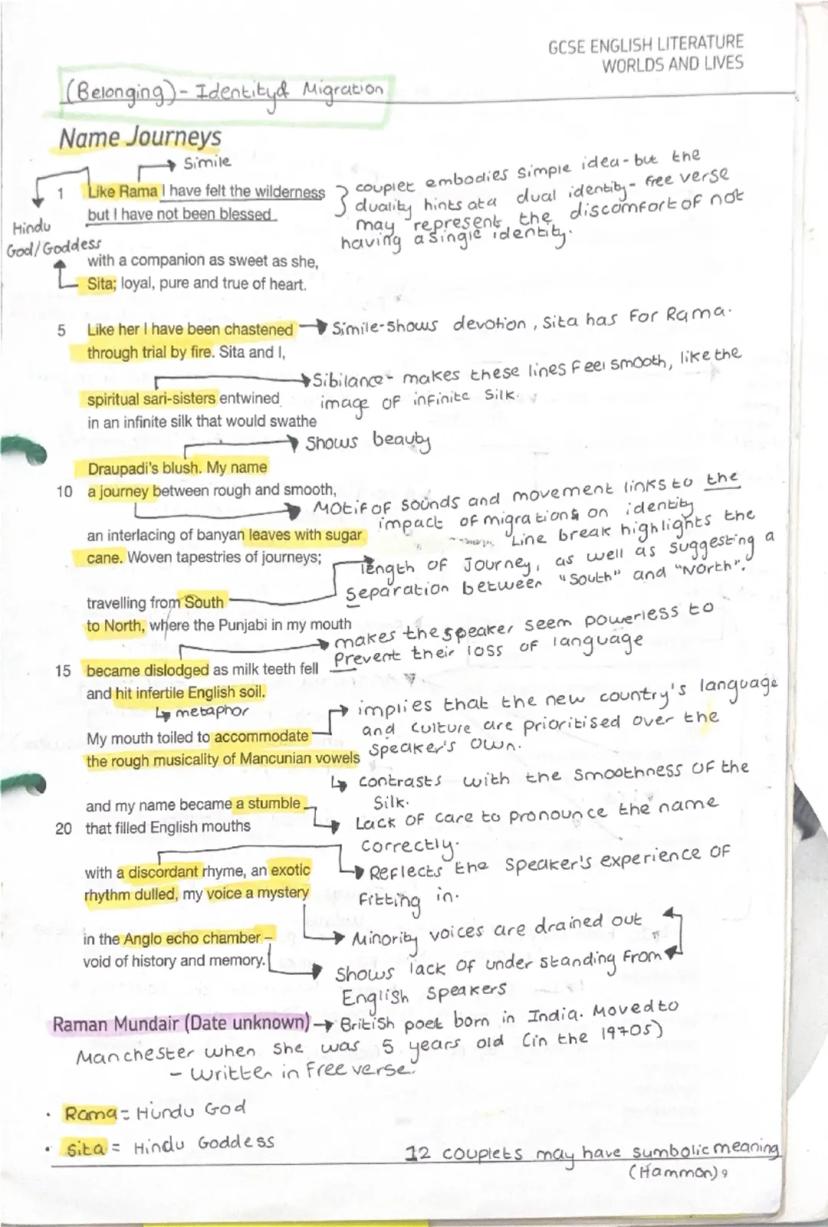 GCSE ENGLISH LITERATURE
WORLDS AND LIVES
(Belonging) - Identity & Migration
Name Journeys
Simile
1 Like Rama I have felt the wilderness
but I have not been blessed
couplet embodies simple idea - but the
duality hints at a dual identity - free verse
may represent the discomfort of not
having a single identity.
Hindu
God/Goddess
with a companion as sweet as she,
Sita; loyal, pure and true of heart.
5 Like her I have been chastened
Simile-shows devotion, Sita has For Rama.
through trial by fire. Sita and I,
Sibilance - makes these lines feel smooth, like the
image of infinite silk.
spiritual sari-sisters entwined
in an infinite silk that would swathe
Shows beauty
Draupadi's blush. My name
10 a journey between rough and smooth,
Motif of sounds and movement links to the
impact of migration on identity
an interlacing of banyan leaves with sugar
cane. Woven tapestries of journeys;
Line break highlights the
length of Journey, as well as suggesting a
Separation between "South" and "North".
travelling from South
to North, where the Punjabi in my mouth
makes the speaker seem powerless to
Prevent their loss of language
15 became dislodged as milk teeth fell
and hit infertile English soil.
↳ metaphor
implies that the new country's language
and culture are prioritised over the
speaker's own.
My mouth toiled to accommodate
the rough musicality of Mancunian vowels
↳ contrasts with the smoothness of the
Silk.
and my name became a stumble
20 that filled English mouths
Lack of care to pronounce the name
correctly.
with a discordant rhyme, an exotic
rhythm dulled, my voice a mystery
Reflects the speaker's experience of
Fitting in.
in the Anglo echo chamber –
void of history and memory.
Minority voices are drained out
Shows lack of under standing from
English speakers
Raman Mundair (Date unknown) → British poet born in India. Moved to
Manchester when she was 5 years old (in the 1970s)
- Written in Free verse.
• Rama = Hindu God
• Sita = Hindu Goddess
12 couplets may have sumbolic meaning
(Hammon) 9